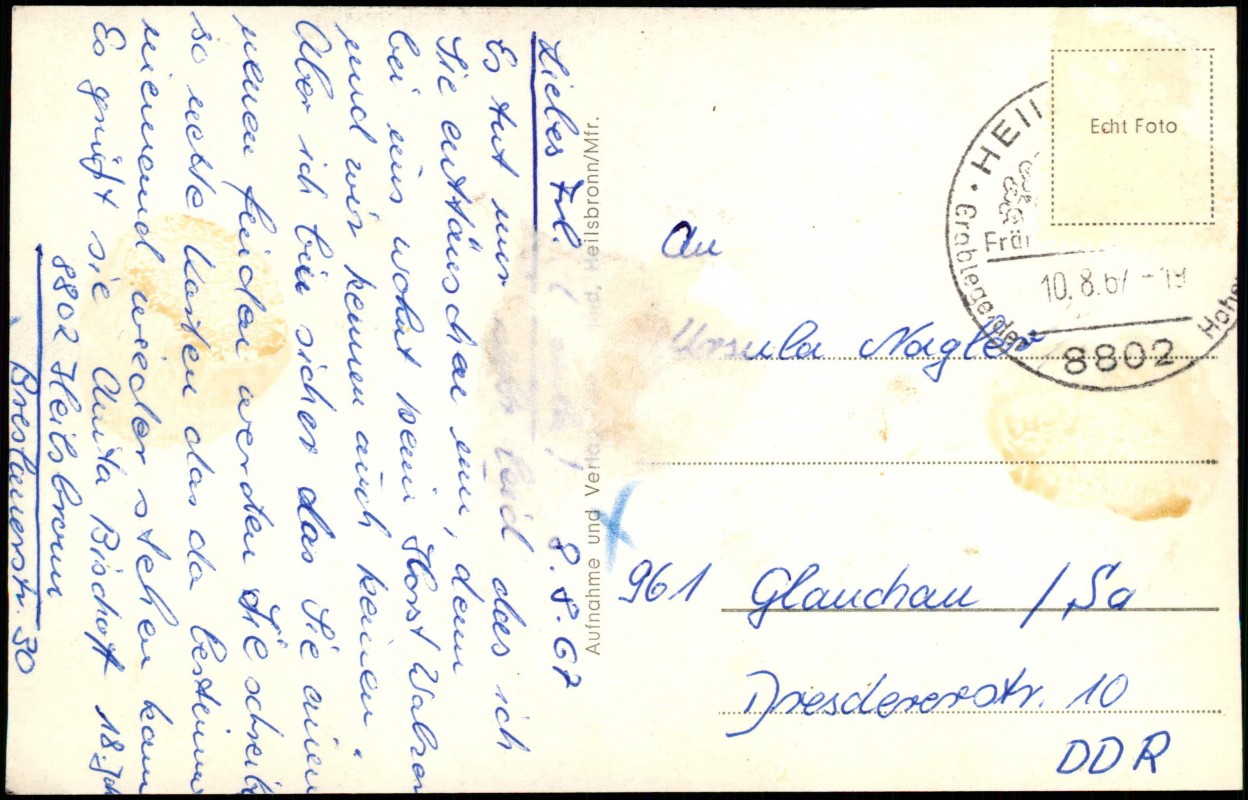 Liebes Frl. 8.8.67
Es tut mir leid das ich
Sie entäuschen mu, denn
bei uns wohnt kein Horst Walron
und wir kennen auch keinen.
Aber ich bin sicher das Sie einen
neuen finden werden Sie schreib
so nette Karten das da bestimm
niemand wieder stehen kann
Es grüßt sie Anita Bischoff 18. Jah
8802 Heilsbronn
Breslauerstr. 30
Aufnahme und Verlag Heilsbronn/Mfr.
Echt Foto
HEIL
Grablege der Hohe
Frän
10.8.67-19
8802
An
Ursula Nagler
961 Glauchau / Sa
Dresdenerstr. 10
DDR